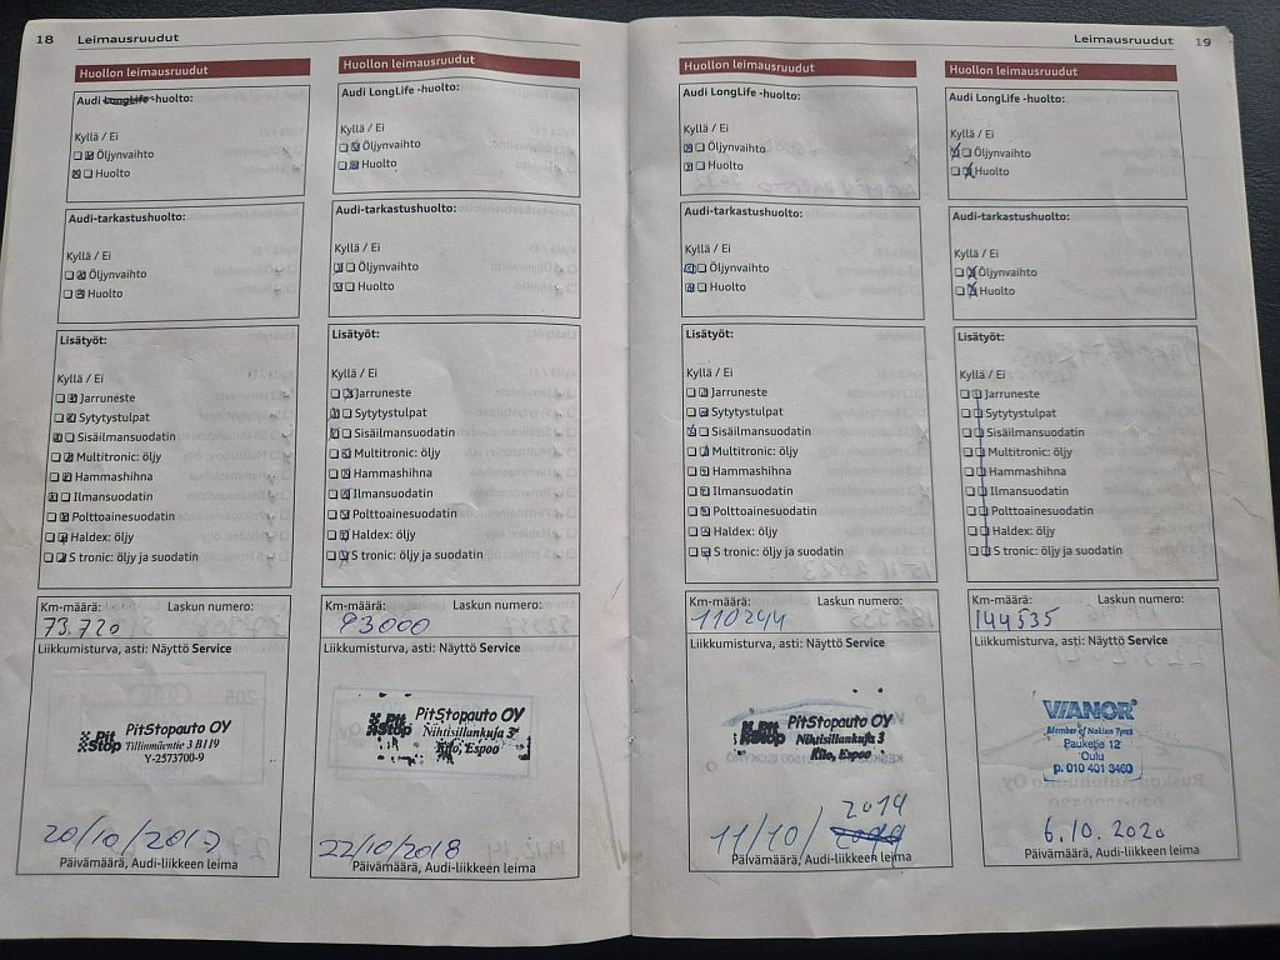 18 Leimausruudut
Huollon leimausruudut
Audi LongLife -huolto:
Kyllä / Ei
Öljynvaihto
Huolto
Audi-tarkastushuolto:
Kyllä / Ei
Öljynvaihto
Huolto
Lisätyöt:
Kyllä / Ei
Jarruneste
Sytytystulpat
Sisäilmansuodatin
Multitronic: öljy
Hammashihna
Ilmansuodatin
Polttoainesuodatin
Haldex: öljy
S tronic: öljy ja suodatin
Km-määrä: Laskun numero:
73.720
Liikkumisturva, asti: Näyttö Service
Pit Stop
PitStopauto OY
Tillinmäentie 3 B119
Y-2573700-9
20/10/2017
Päivämäärä, Audi-liikkeen leima
Huollon leimausruudut
Audi LongLife -huolto:
Kyllä / Ei
Öljynvaihto
Huolto
Audi-tarkastushuolto:
Kyllä / Ei
Öljynvaihto
Huolto
Lisätyöt:
Kyllä / Ei
Jarruneste
Sytytystulpat
Sisäilmansuodatin
Multitronic: öljy
Hammashihna
Ilmansuodatin
Polttoainesuodatin
Haldex: öljy
S tronic: öljy ja suodatin
Km-määrä: Laskun numero:
93000
Liikkumisturva, asti: Näyttö Service
Pit Stop
PitStopauto OY
Nihtisillankuja 3
Kilo, Espoo
22/10/2018
Päivämäärä, Audi-liikkeen leima
Leimausruudut 19
Huollon leimausruudut
Audi LongLife -huolto:
Kyllä / Ei
Öljynvaihto
Huolto
Audi-tarkastushuolto:
Kyllä / Ei
Öljynvaihto
Huolto
Lisätyöt:
Kyllä / Ei
Jarruneste
Sytytystulpat
Sisäilmansuodatin
Multitronic: öljy
Hammashihna
Ilmansuodatin
Polttoainesuodatin
Haldex: öljy
S tronic: öljy ja suodatin
Km-määrä: Laskun numero:
110244
Liikkumisturva, asti: Näyttö Service
Pit Stop
PitStopauto OY
Nihtisillankuja 3
Kilo, Espoo
2019
11/10/
Päivämäärä, Audi-liikkeen leima
Huollon leimausruudut
Audi LongLife -huolto:
Kyllä / Ei
Öljynvaihto
Huolto
Audi-tarkastushuolto:
Kyllä / Ei
Öljynvaihto
Huolto
Lisätyöt:
Kyllä / Ei
Jarruneste
Sytytystulpat
Sisäilmansuodatin
Multitronic: öljy
Hammashihna
Ilmansuodatin
Polttoainesuodatin
Haldex: öljy
S tronic: öljy ja suodatin
Km-määrä: Laskun numero:
144535
Liikkumisturva, asti: Näyttö Service
VIANOR
Member of Nokian Tyres
Pauketie 12
Oulu
p. 010 401 3460
6.10.2020
Päivämäärä, Audi-liikkeen leima